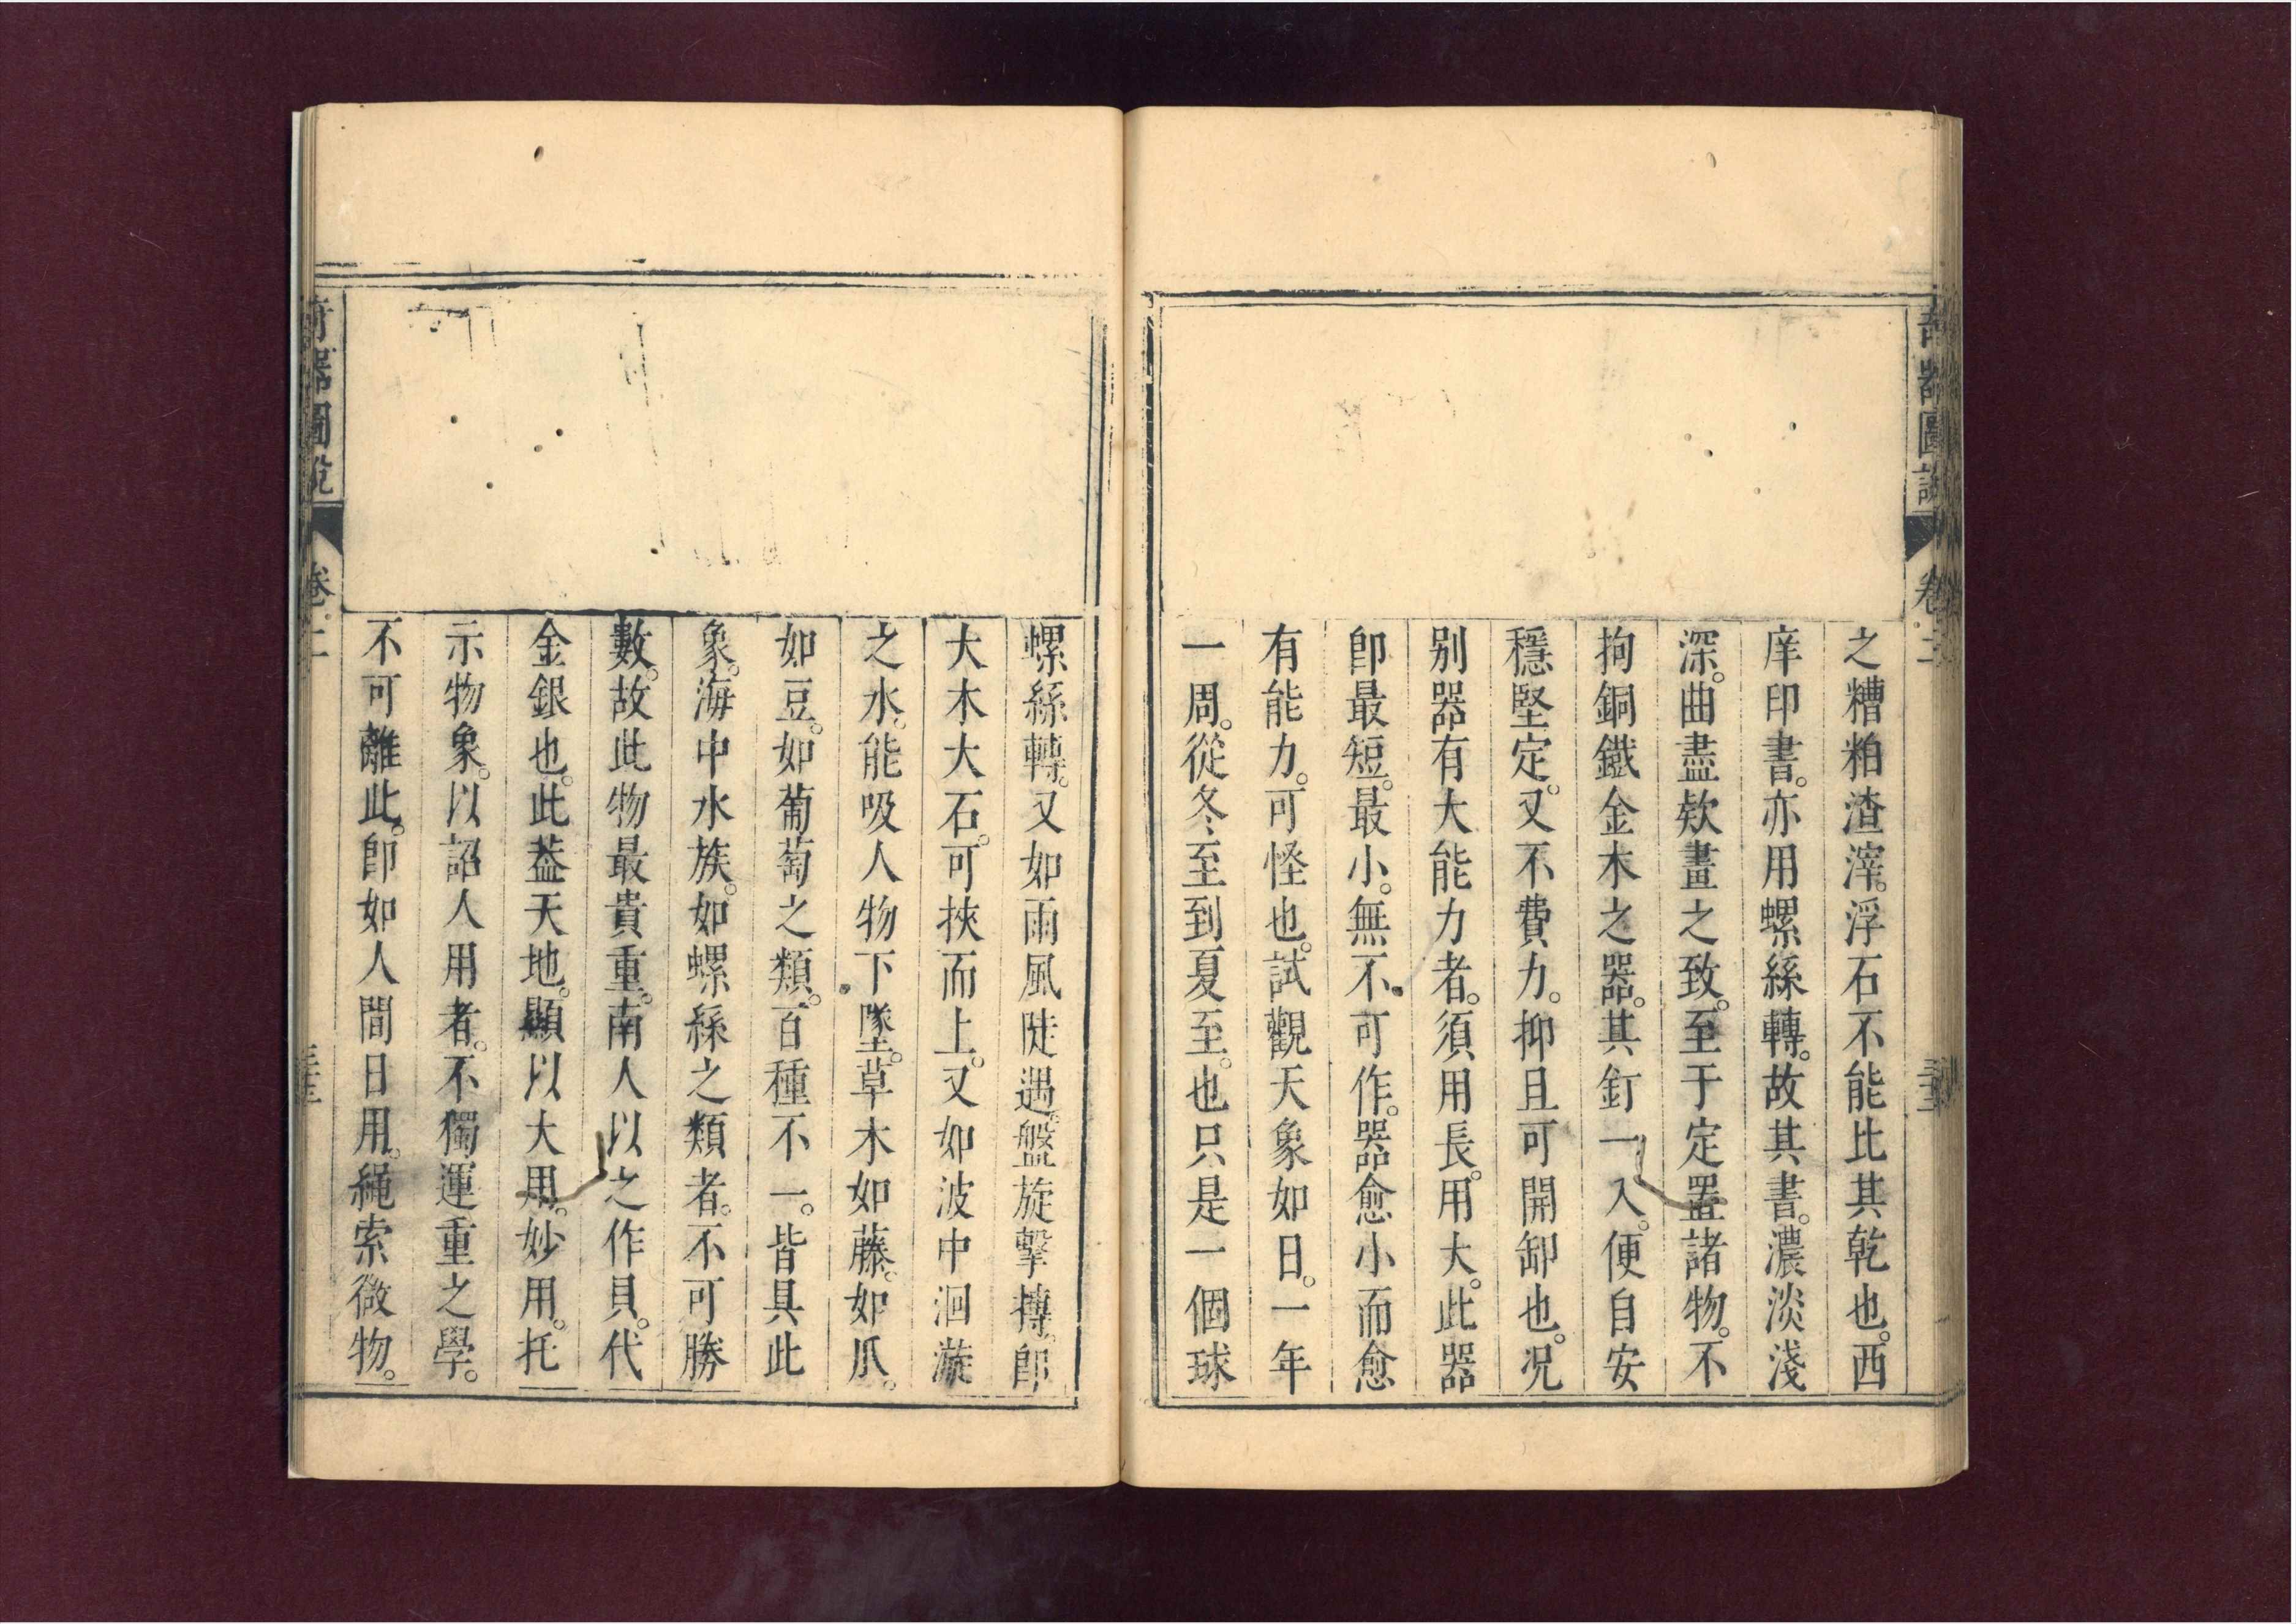 奇器圖說
卷二
之糟粕渣滓。浮石不能比其乾也。西
庠印書。亦用螺絲轉。故其書。濃淡淺
深。曲盡欵畫之致。至于定置諸物。不
拘銅鐵金木之器。其釘一入。便自安
穩堅定。又不費力。抑且可開卸也。况
别器有大能力者。須用長。用大。此器
卽最短。最小。無不可作。器愈小而愈
有能力。可怪也。試觀天象如日。一年
一周。從冬至到夏至。也只是一個球
螺絲轉。又如雨風陡遇。盤旋擊摶。卽
大木大石。可挾而上。又如波中洄漩
之水。能吸人物下墜。草木如藤。如瓜。
如豆。如葡萄之類。百種不一。皆具此
象。海中水族。如螺絲之類者。不可勝
數。故此物最貴重。南人以之作貝。代
金銀也。此葢天地。顯以大用。妙用。托
示物象。以詔人用者。不獨運重之學。
不可離此。卽如人間日用。繩索微物。
奇器圖說
卷二